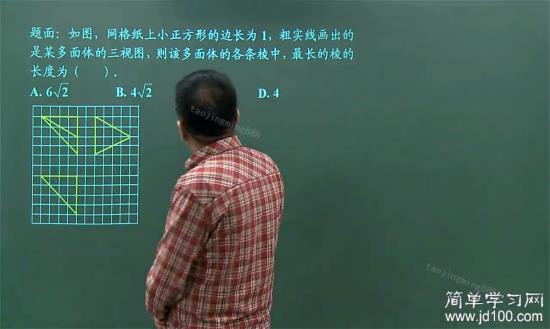 题面：如图，网格纸上小正方形的边长为 1，粗实线画出的
是某多面体的三视图，则该多面体的各条棱中，最长的棱的
长度为（　）．
A. 6√2 B. 4√2 D. 4
taojingming886
taojingming886
简单学习网
www.jd100.com